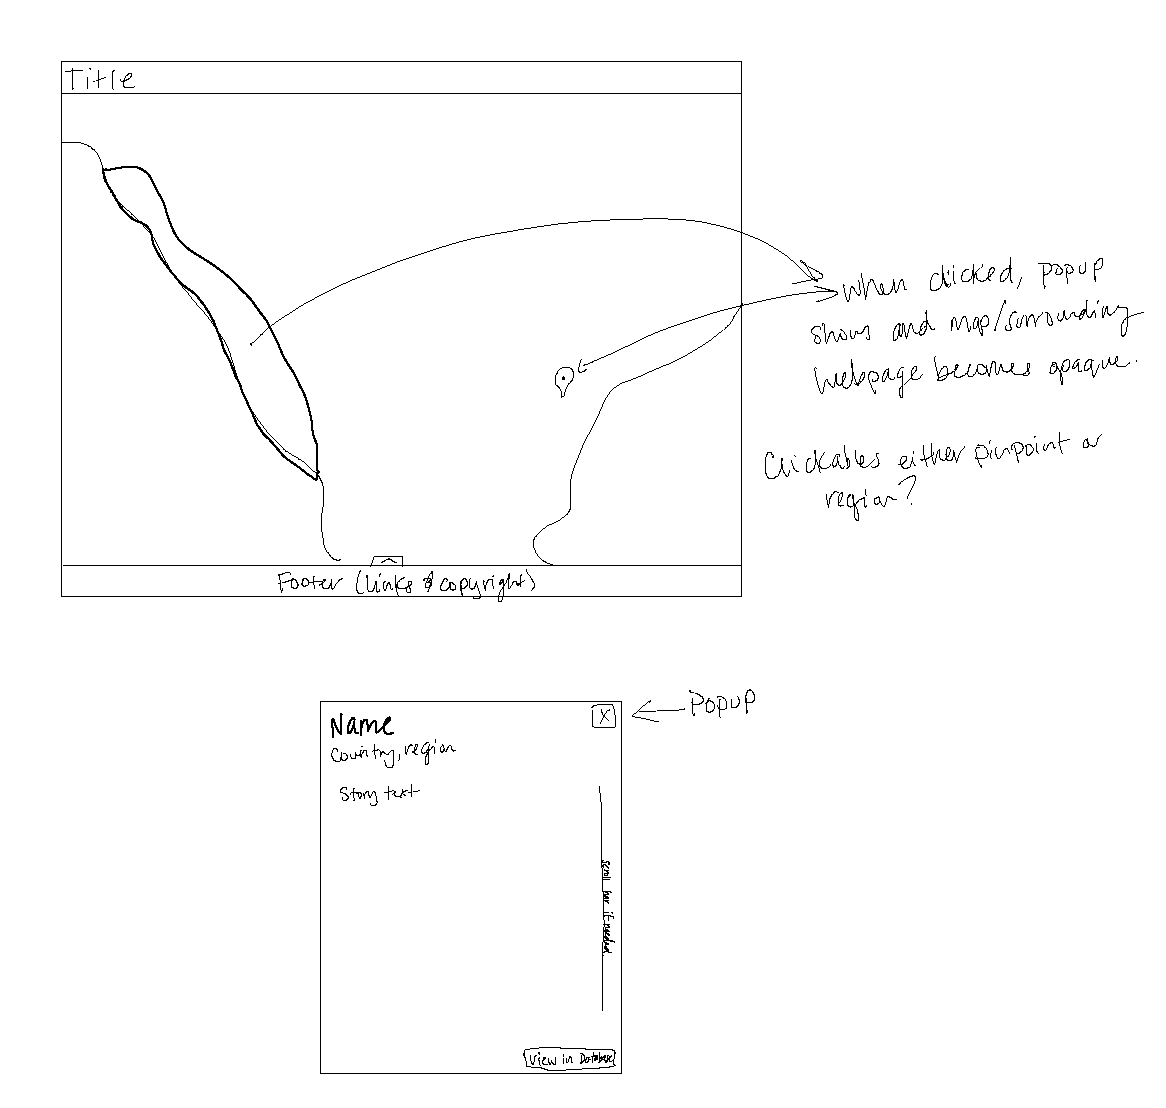 Title
When clicked, popup
shows and map/surrounding
webpage becomes opaque.
Clickables either pinpoint or
region?
Footer (links & copyright)
Popup
X
Name
Country, region
Story text
scroll bar if needed
View in Database